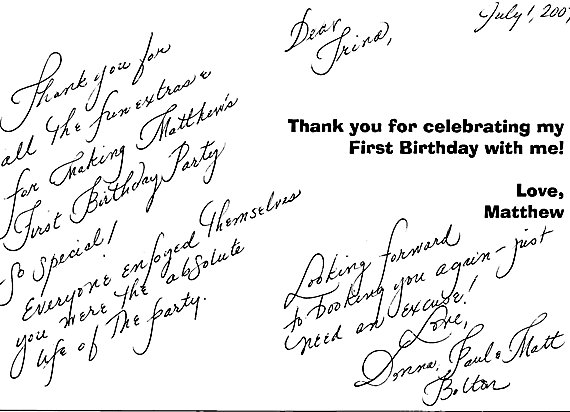 July 1, 200
Dear
Trina,
Thank you for celebrating my
First Birthday with me!
Love,
Matthew
Thank you for
all the fun extras &
for Making Matthew's
First Birthday Party
So Special!
Everyone enjoyed themselves
you were the absolute
life of the party.
Looking forward
to booking you again - just
need an excuse!
Love,
Donna, Paul & Matt
Bolton